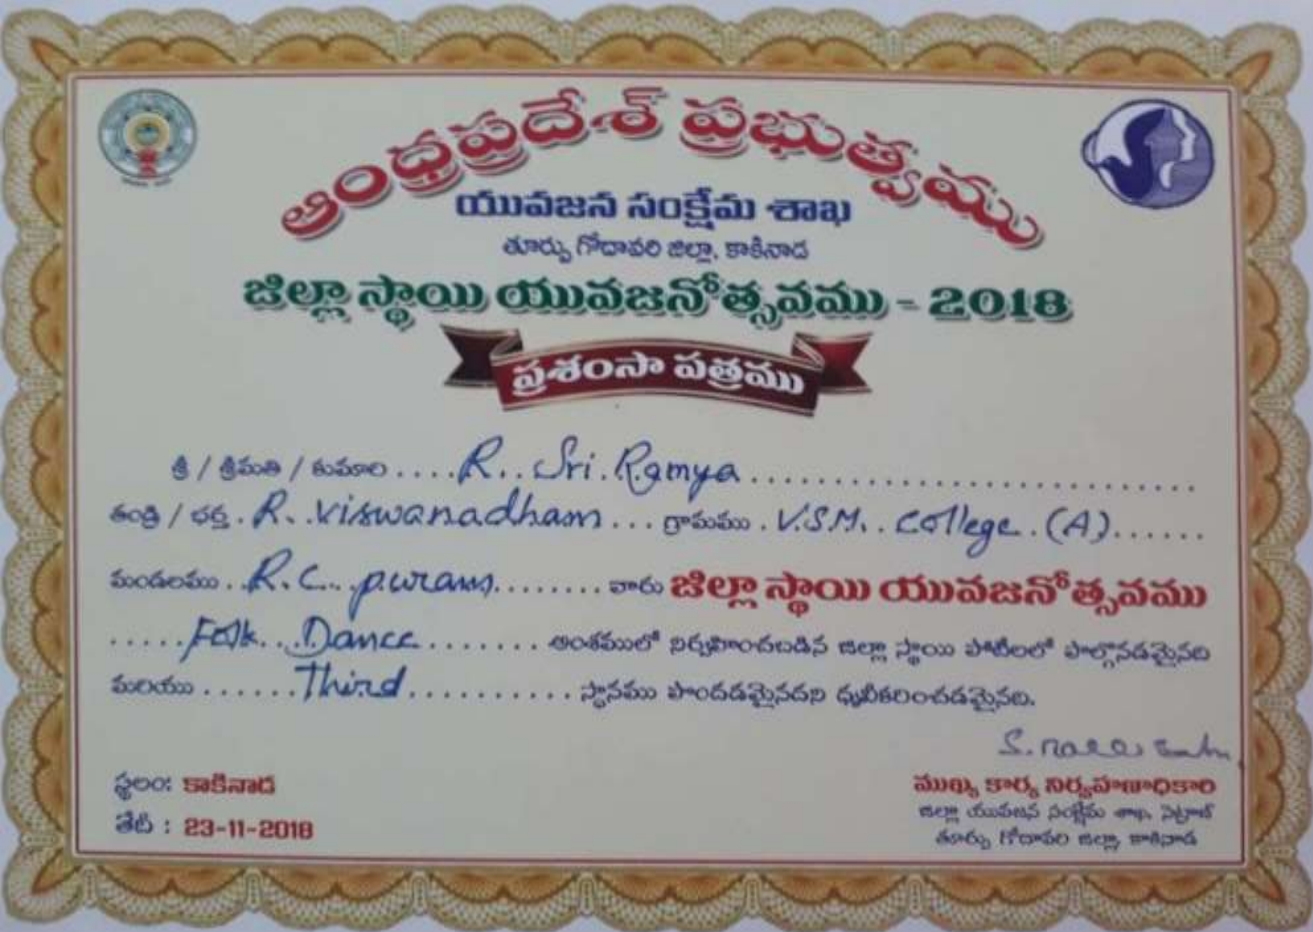 ఆంధ్రప్రదేశ్ ప్రభుత్వము
యువజన సంక్షేమ శాఖ
తూర్పు గోదావరి జిల్లా, కాకినాడ
జిల్లా స్థాయి యువజనోత్సవము - 2018
ప్రశంసా పత్రము
శ్రీ / శ్రీమతి / కుమారి .... R. Sri Ramya ....
తండ్రి / భర్త . R. Viswanadham ... గ్రామము . V.S.M. College (A) ......
మండలము . R.C. puram ........ వారు జిల్లా స్థాయి యువజనోత్సవము
..... Folk Dance ....... అంశములో నిర్వహించబడిన జిల్లా స్థాయి పోటీలలో పాల్గొనడమైనది
మరియు ...... Third .......... స్థానము పొందడమైనదని ధృవీకరించడమైనది.
స్థలం: కాకినాడ
తేది : 23-11-2018
ముఖ్య కార్య నిర్వహణాధికారి
జిల్లా యువజన సంక్షేమ శాఖ, సెట్రాజ్
తూర్పు గోదావరి జిల్లా, కాకినాడ